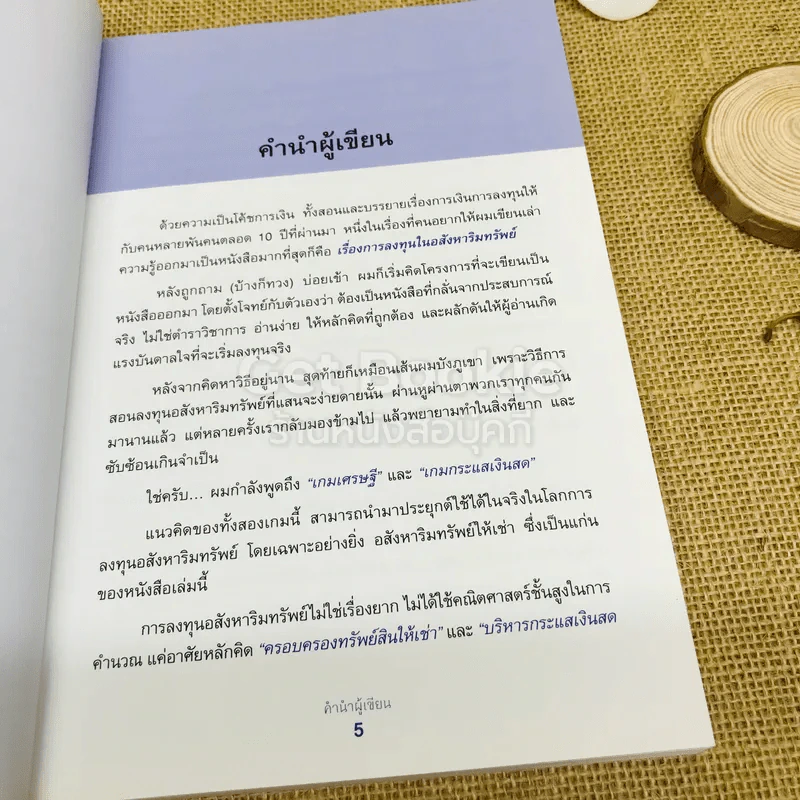 คำนำผู้เขียน
ด้วยความเป็นโค้ชการเงิน ทั้งสอนและบรรยายเรื่องการเงินการลงทุนให้
กับคนหลายพันคนตลอด 10 ปีที่ผ่านมา หนึ่งในเรื่องที่คนอยากให้ผมเขียนเล่า
ความรู้ออกมาเป็นหนังสือมากที่สุดก็คือ เรื่องการลงทุนในอสังหาริมทรัพย์
หลังถูกถาม (บ้างก็ทวง) บ่อยเข้า ผมก็เริ่มคิดโครงการที่จะเขียนเป็น
หนังสือออกมา โดยตั้งโจทย์กับตัวเองว่า ต้องเป็นหนังสือที่กลั่นจากประสบการณ์
จริง ไม่ใช่ตำราวิชาการ อ่านง่าย ให้หลักคิดที่ถูกต้อง และผลักดันให้ผู้อ่านเกิด
แรงบันดาลใจที่จะเริ่มลงทุนจริง
หลังจากคิดหาวิธีอยู่นาน สุดท้ายก็เหมือนเส้นผมบังภูเขา เพราะวิธีการ
สอนลงทุนอสังหาริมทรัพย์ที่แสนจะง่ายดายนั้น ผ่านหูผ่านตาพวกเราทุกคนกัน
มานานแล้ว แต่หลายครั้งเรากลับมองข้ามไป แล้วพยายามทำในสิ่งที่ยาก และ
ซับซ้อนเกินจำเป็น
ใช่ครับ... ผมกำลังพูดถึง “เกมเศรษฐี” และ “เกมกระแสเงินสด”
แนวคิดของทั้งสองเกมนี้ สามารถนำมาประยุกต์ใช้ได้ในจริงในโลกการ
ลงทุนอสังหาริมทรัพย์ โดยเฉพาะอย่างยิ่ง อสังหาริมทรัพย์ให้เช่า ซึ่งเป็นแก่น
ของหนังสือเล่มนี้
การลงทุนอสังหาริมทรัพย์ไม่ใช่เรื่องยาก ไม่ได้ใช้คณิตศาสตร์ชั้นสูงในการ
คำนวณ แค่อาศัยหลักคิด “ครอบครองทรัพย์สินให้เช่า” และ “บริหารกระแสเงินสด
คำนำผู้เขียน
5
Get Bookie
ร้านหนังสือบุคกี้